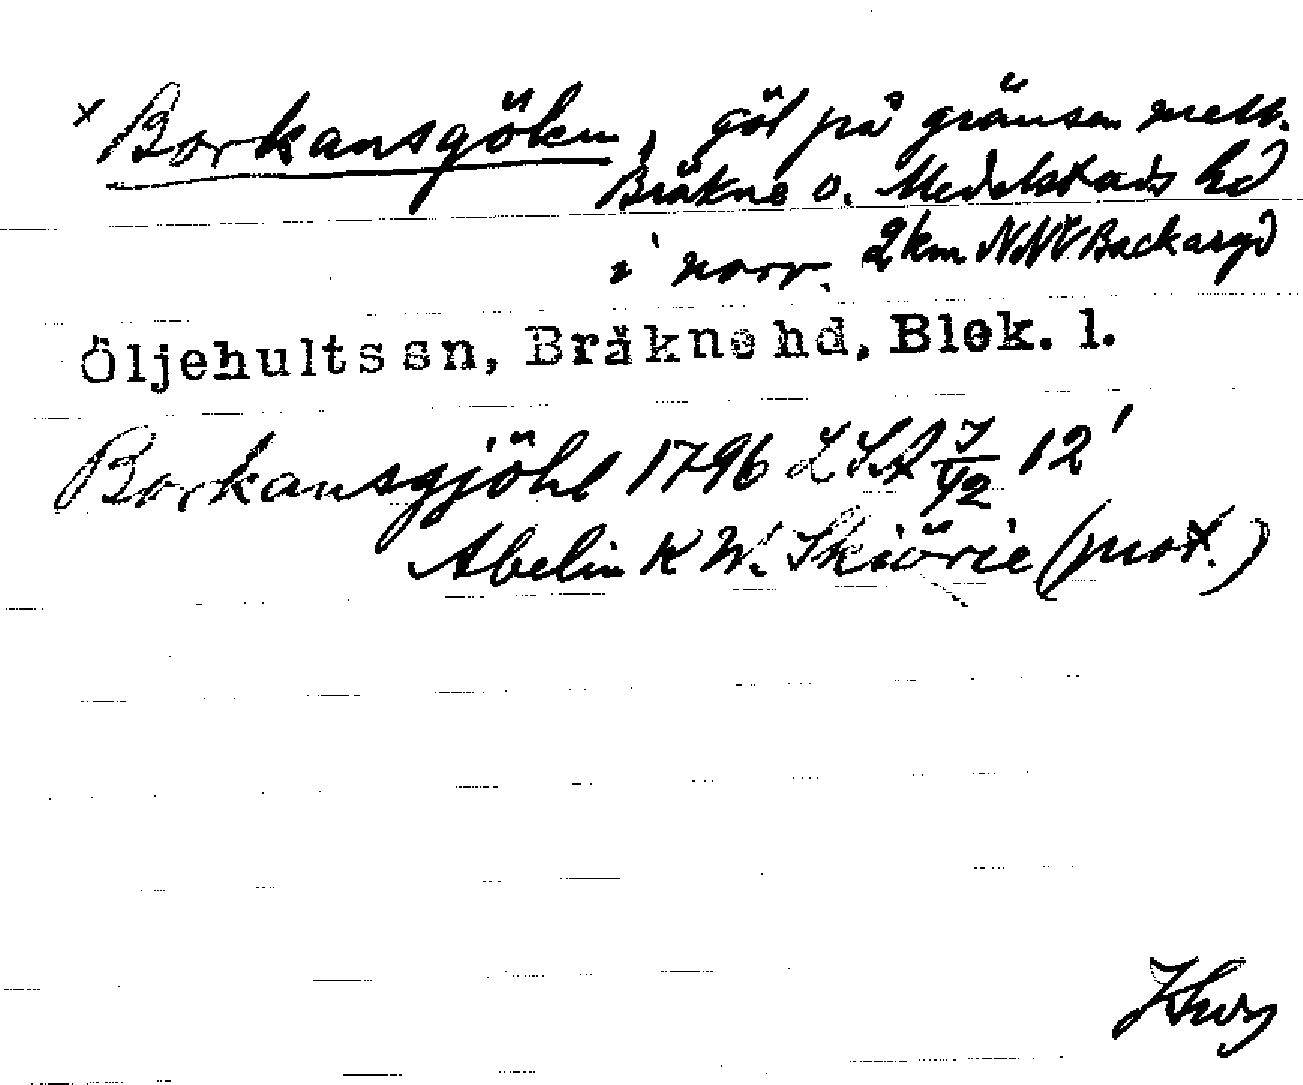 x Borkansgölen, göl på gränsen mell.
Bräkne o. Medelstads hd
i norr. 2 km NNV Backaryd
Öljehults sn, Bräkne hd, Blek. l.
Borkansgjöhl 1796 LSA 7/Y2 12'
Abelin K W. Skiörie (prot.)